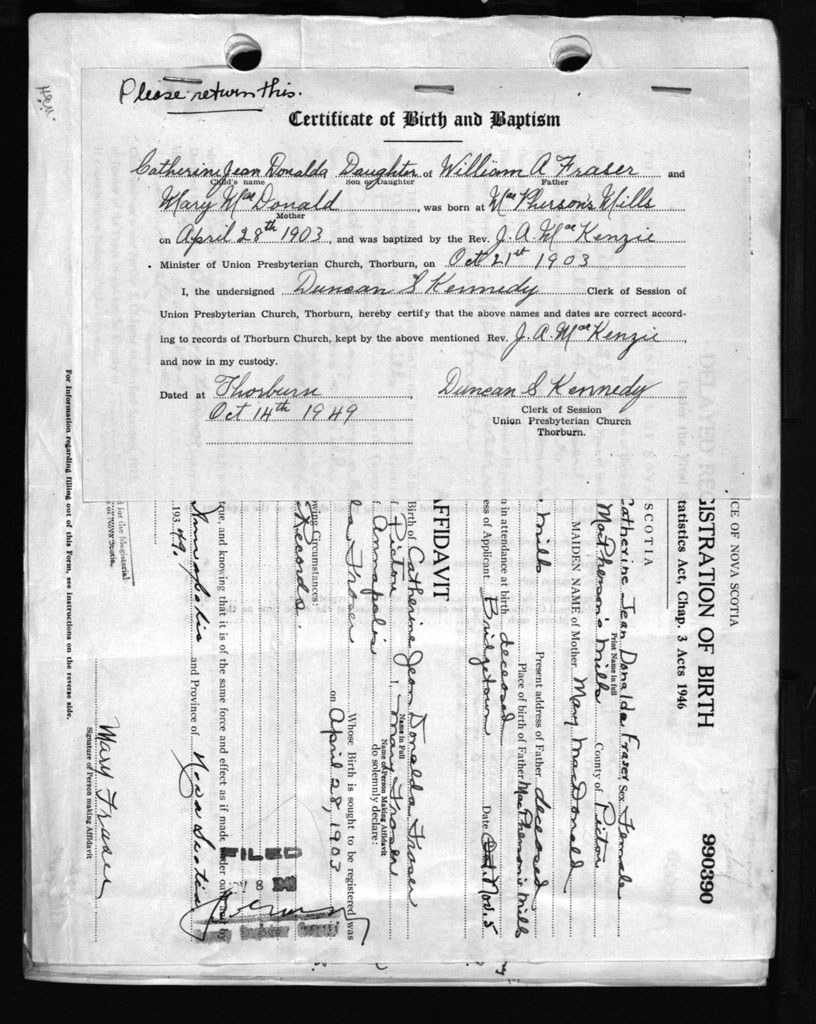 Please return this.
Certificate of Birth and Baptism
Catherine Jean Donalda Daughter of William A Fraser and
Child's name Son or Daughter Father
Mary MacDonald, was born at MacPherson's Mills
Mother
on April 28th 1903, and was baptized by the Rev. J. A. MacKenzie
Minister of Union Presbyterian Church, Thorburn, on Oct 21st 1903
I, the undersigned Duncan S Kennedy Clerk of Session of
Union Presbyterian Church, Thorburn, hereby certify that the above names and dates are correct accord-
ing to records of Thorburn Church, kept by the above mentioned Rev. J. A. MacKenzie,
and now in my custody.
Dated at Thorburn, Duncan S Kennedy
Oct 14th 1949 Clerk of Session
Union Presbyterian Church
Thorburn.
CE OF NOVA SCOTIA
GISTRATION OF BIRTH 990390
tatistics Act, Chap. 3 Acts 1946
SCOTIA
Catherine Jean Donalda Fraser Sex Female
Print Name in full
MacPherson's Mills County of Pictou
MAIDEN NAME of Mother Mary MacDonald
Present address of Father deceased
Mills Place of birth of Father MacPherson's Mills
n in attendance at birth deceased
ess of Applicant Bridgetown Date Nov. 5
FFIDAVIT
Birth of Catherine Jean Donalda Fraser
Name in Full
Pictou I, Mary Fraser
Name of Person Making Affidavit
Annapolis do solemnly declare:
Fraser Whose Birth is sought to be registered was
on April 28, 1903
owing Circumstances:
Records.
true, and knowing that it is of the same force and effect as if made under
Annapolis and Province of Nova Scotia
193 49.
FILED
d for the Magisterial
of Nova Scotia.
Mary Fraser
Signature of Person making Affidavit
For Information regarding filling out of this Form, see instructions on the reverse side.